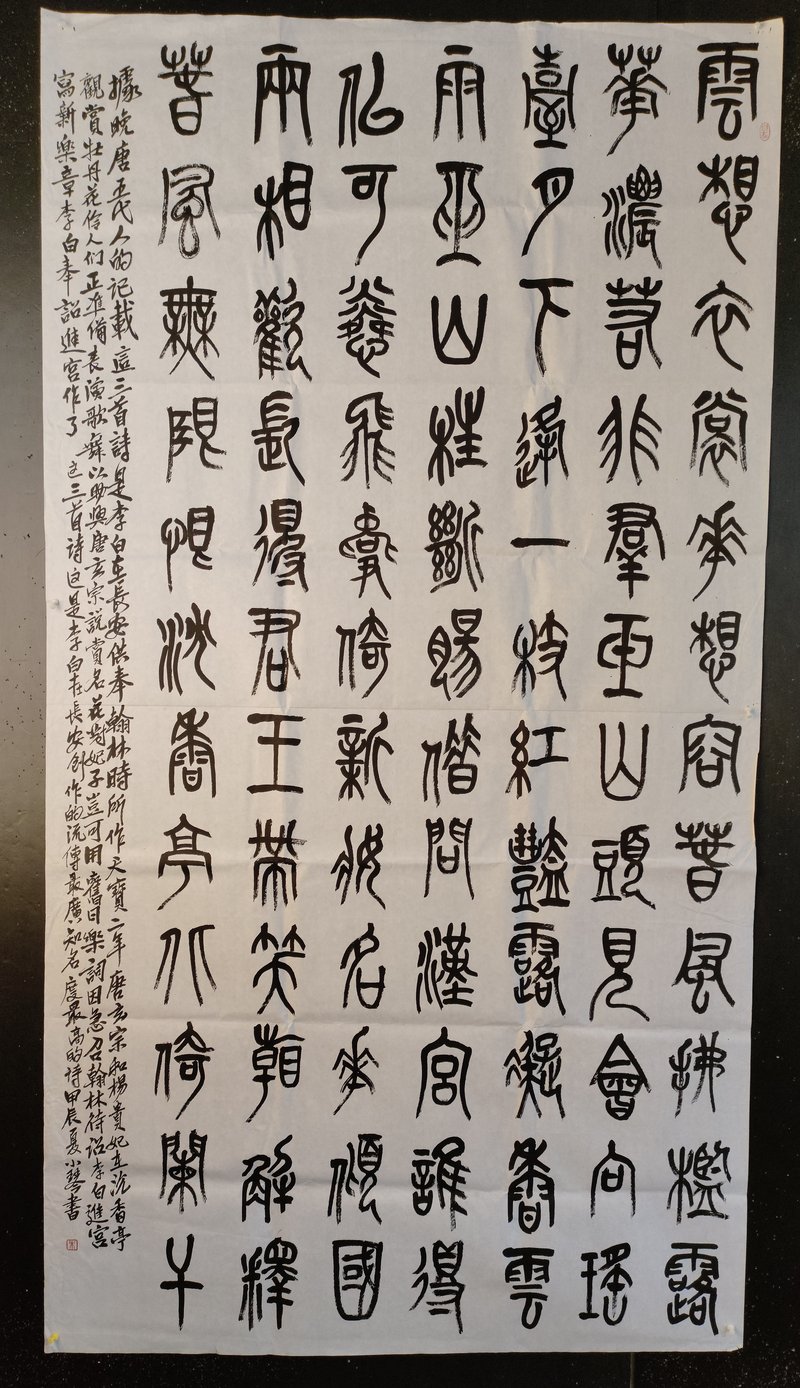 雲想衣裳花想容春風拂檻露
華濃若非羣玉山頭見會向瑤
臺月下逢一枝紅豔露凝香雲
雨巫山枉斷腸借問漢宮誰得
似可憐飛燕倚新妝名花傾國
兩相歡長得君王帶笑看解釋
春風無限恨沈香亭北倚闌干
據晚唐五代人的記載這三首詩是李白在長安供奉翰林時所作天寶二年唐玄宗和楊貴妃在沉香亭
觀賞牡丹花伶人们正準備表演歌舞以助興唐玄宗説賞名花對妃子豈可用舊日樂詞因急召翰林待詔李白進宮
寫新樂章李白奉詔進宮作了这三首詩这是李白在長安創作的流傳最廣知名度最高的诗甲辰夏小琴書